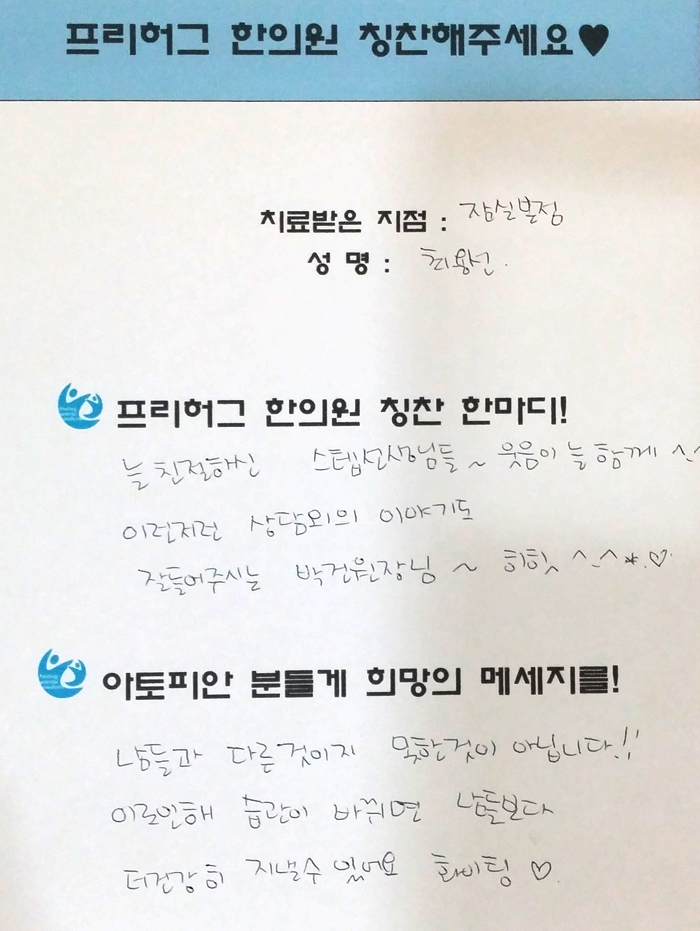 프리허그 한의원 칭찬해주세요♥
치료받은 지점 : 잠실본점
성 명 : 최용선.
프리허그 한의원 칭찬 한마디!
늘 친절하신 스텝선생님들 ~ 웃음이 늘 함께 ^^
이런저런 상담외의 이야기도
잘들어주시는 박건원장님 ~ 히힛 ^.^*.♡.
아토피안 분들게 희망의 메세지를!
남들과 다른것이지 못한것이 아닙니다!!
이로인해 습관이 바뀌면 남들보다
더건강히 지낼수 있어요 화이팅 ♡.